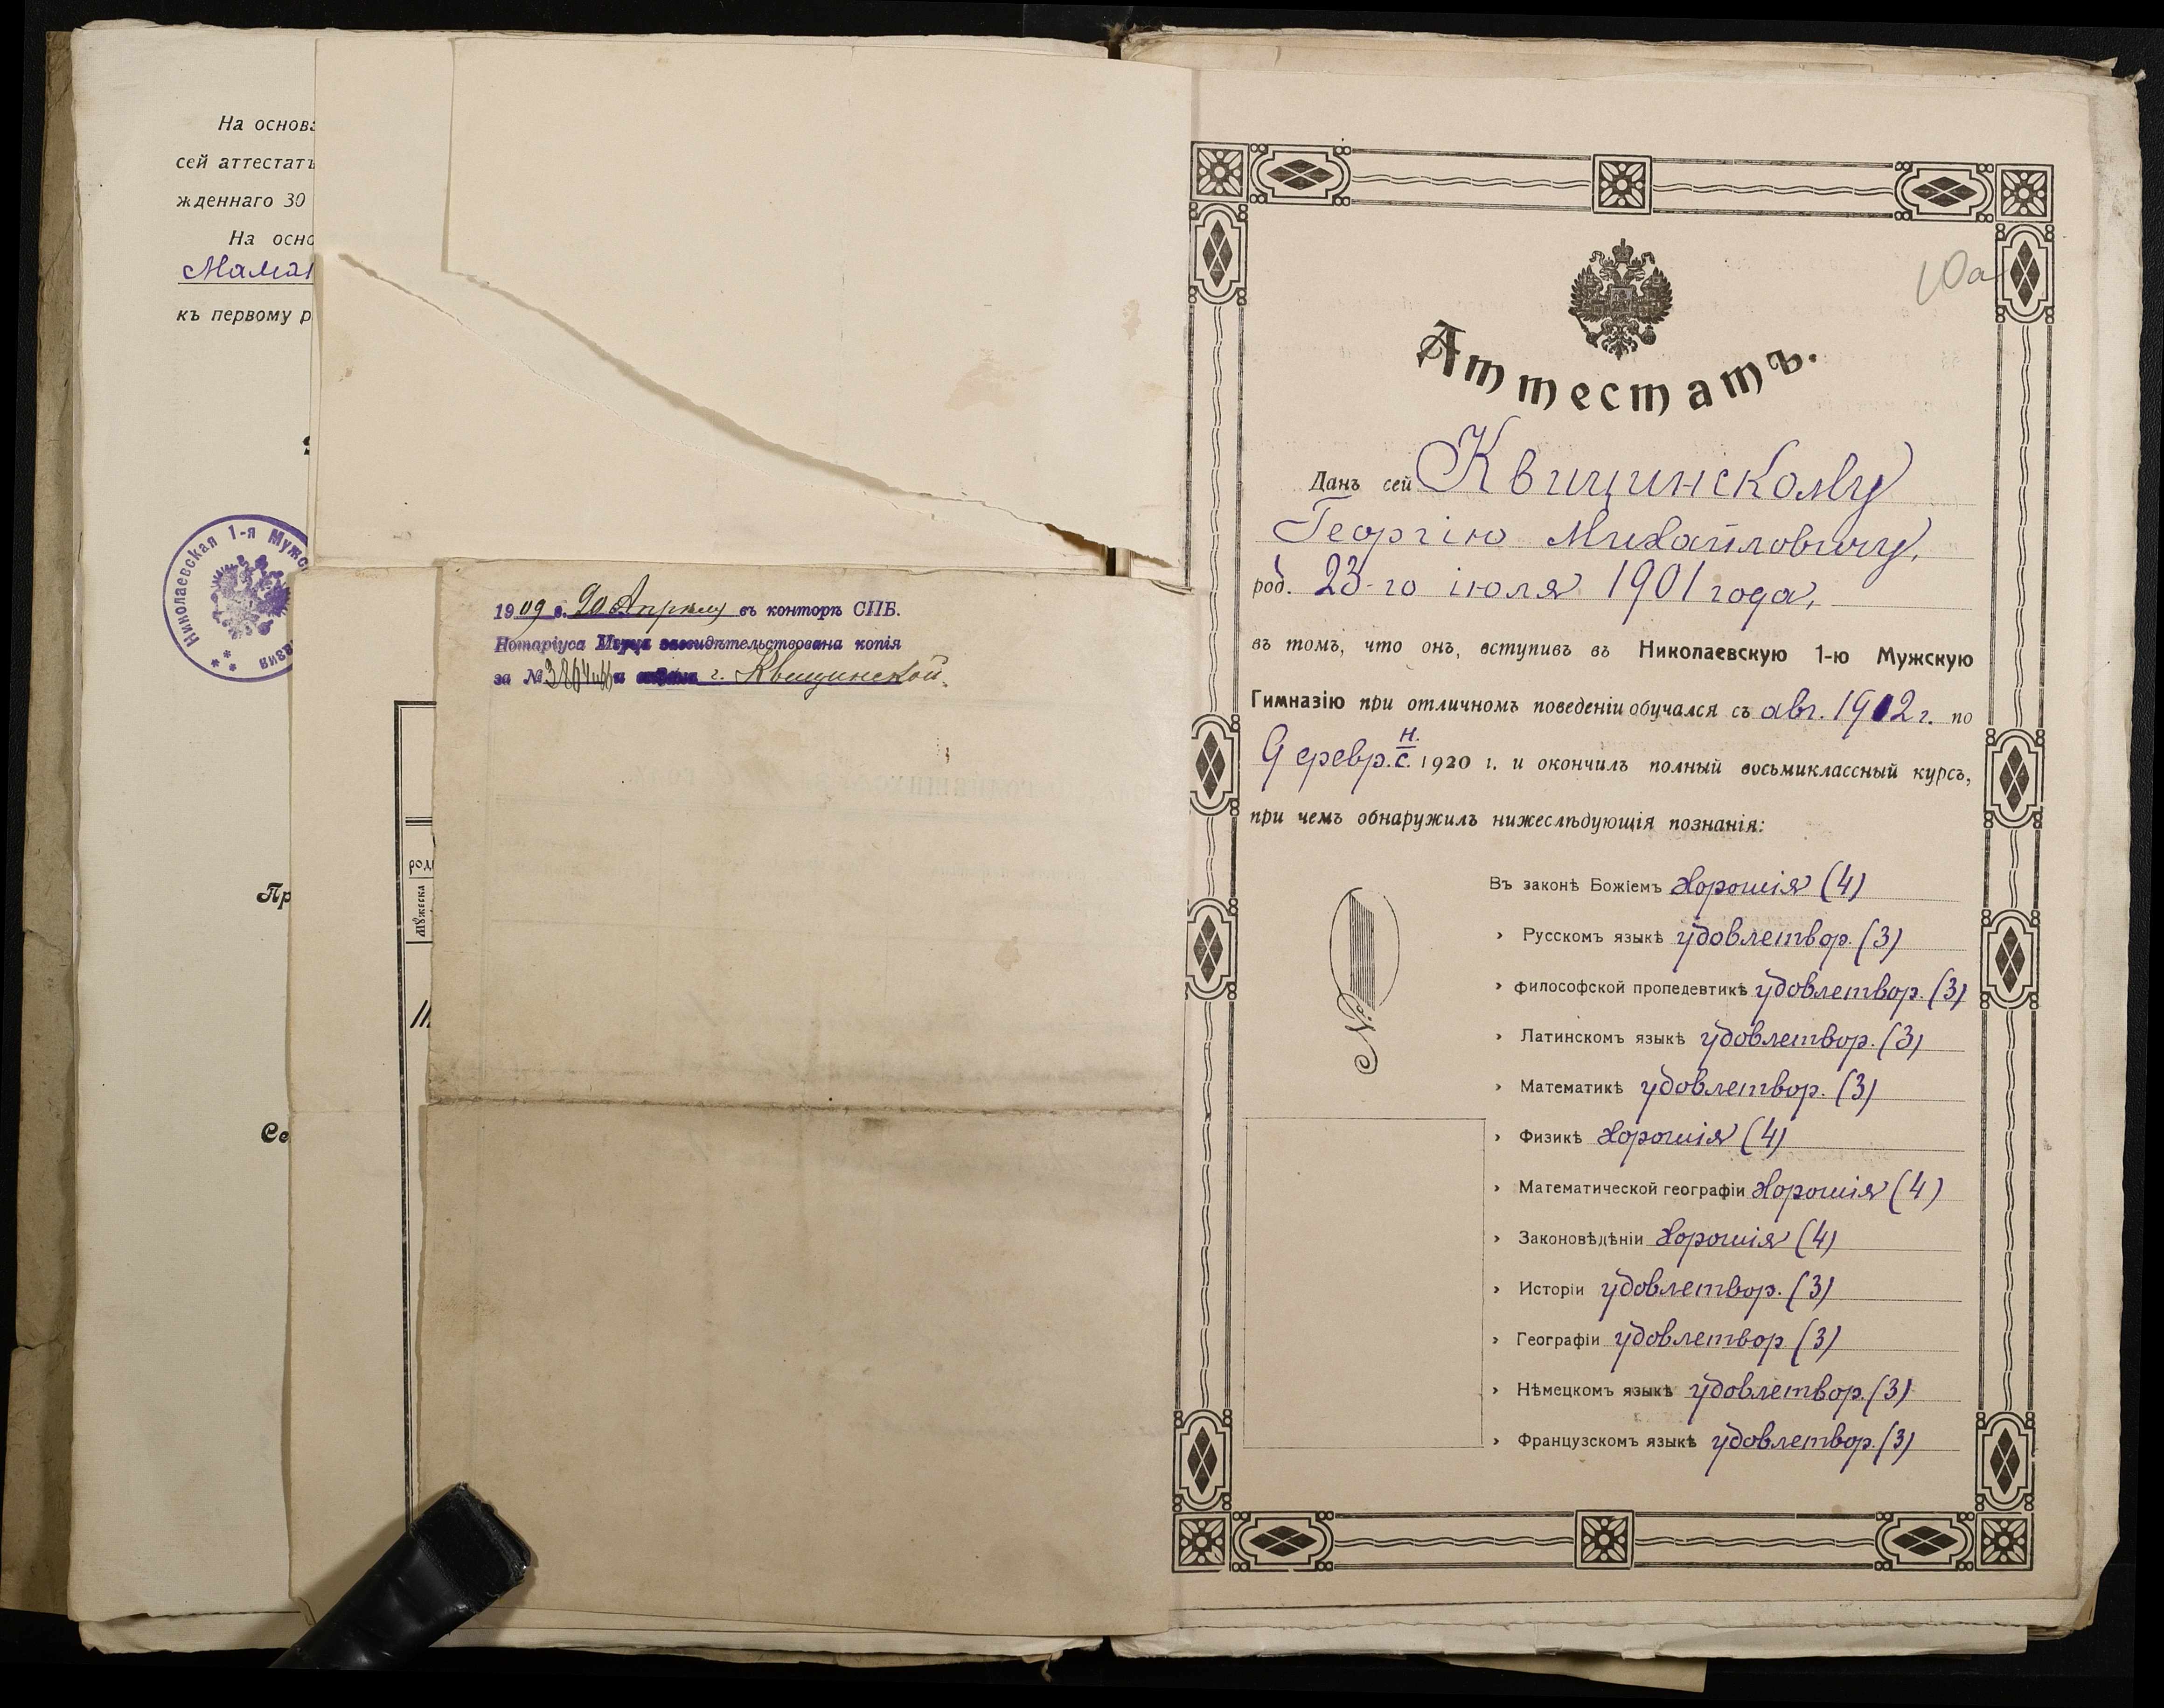 На основа
сей аттестатъ
жденнаго 30
На осно
къ первому р
Николаевская 1-я Мужс
Пр
Се
1909 г. 20 Апрѣля въ конторѣ СПБ.
Нотаріуса засвидѣтельствована копія
за № г. Квицинской.
10а
Аттестатъ.
Данъ сей Квицинскому
Георгію Михайловичу,
род. 23-го іюля 1901 года,
въ томъ, что онъ, вступивъ въ Николаевскую 1-ю Мужскую
Гимназію при отличномъ поведеніи обучался съ авг. 1912 г. по
9 февр. н. с. 1920 г. и окончилъ полный восьмиклассный курсъ,
при чемъ обнаружилъ нижеслѣдующія познанія:
№
Въ законѣ Божіемъ хорошія (4)
› Русскомъ языкѣ удовлетвор. (3)
› философской пропедевтикѣ удовлетвор. (3)
› Латинскомъ языкѣ удовлетвор. (3)
› Математикѣ удовлетвор. (3)
› Физикѣ хорошія (4)
› Математической географіи хорошія (4)
› Законовѣдѣніи хорошія (4)
› Исторіи удовлетвор. (3)
› Географіи удовлетвор. (3)
› Нѣмецкомъ языкѣ удовлетвор. (3)
› Французскомъ языкѣ удовлетвор. (3)